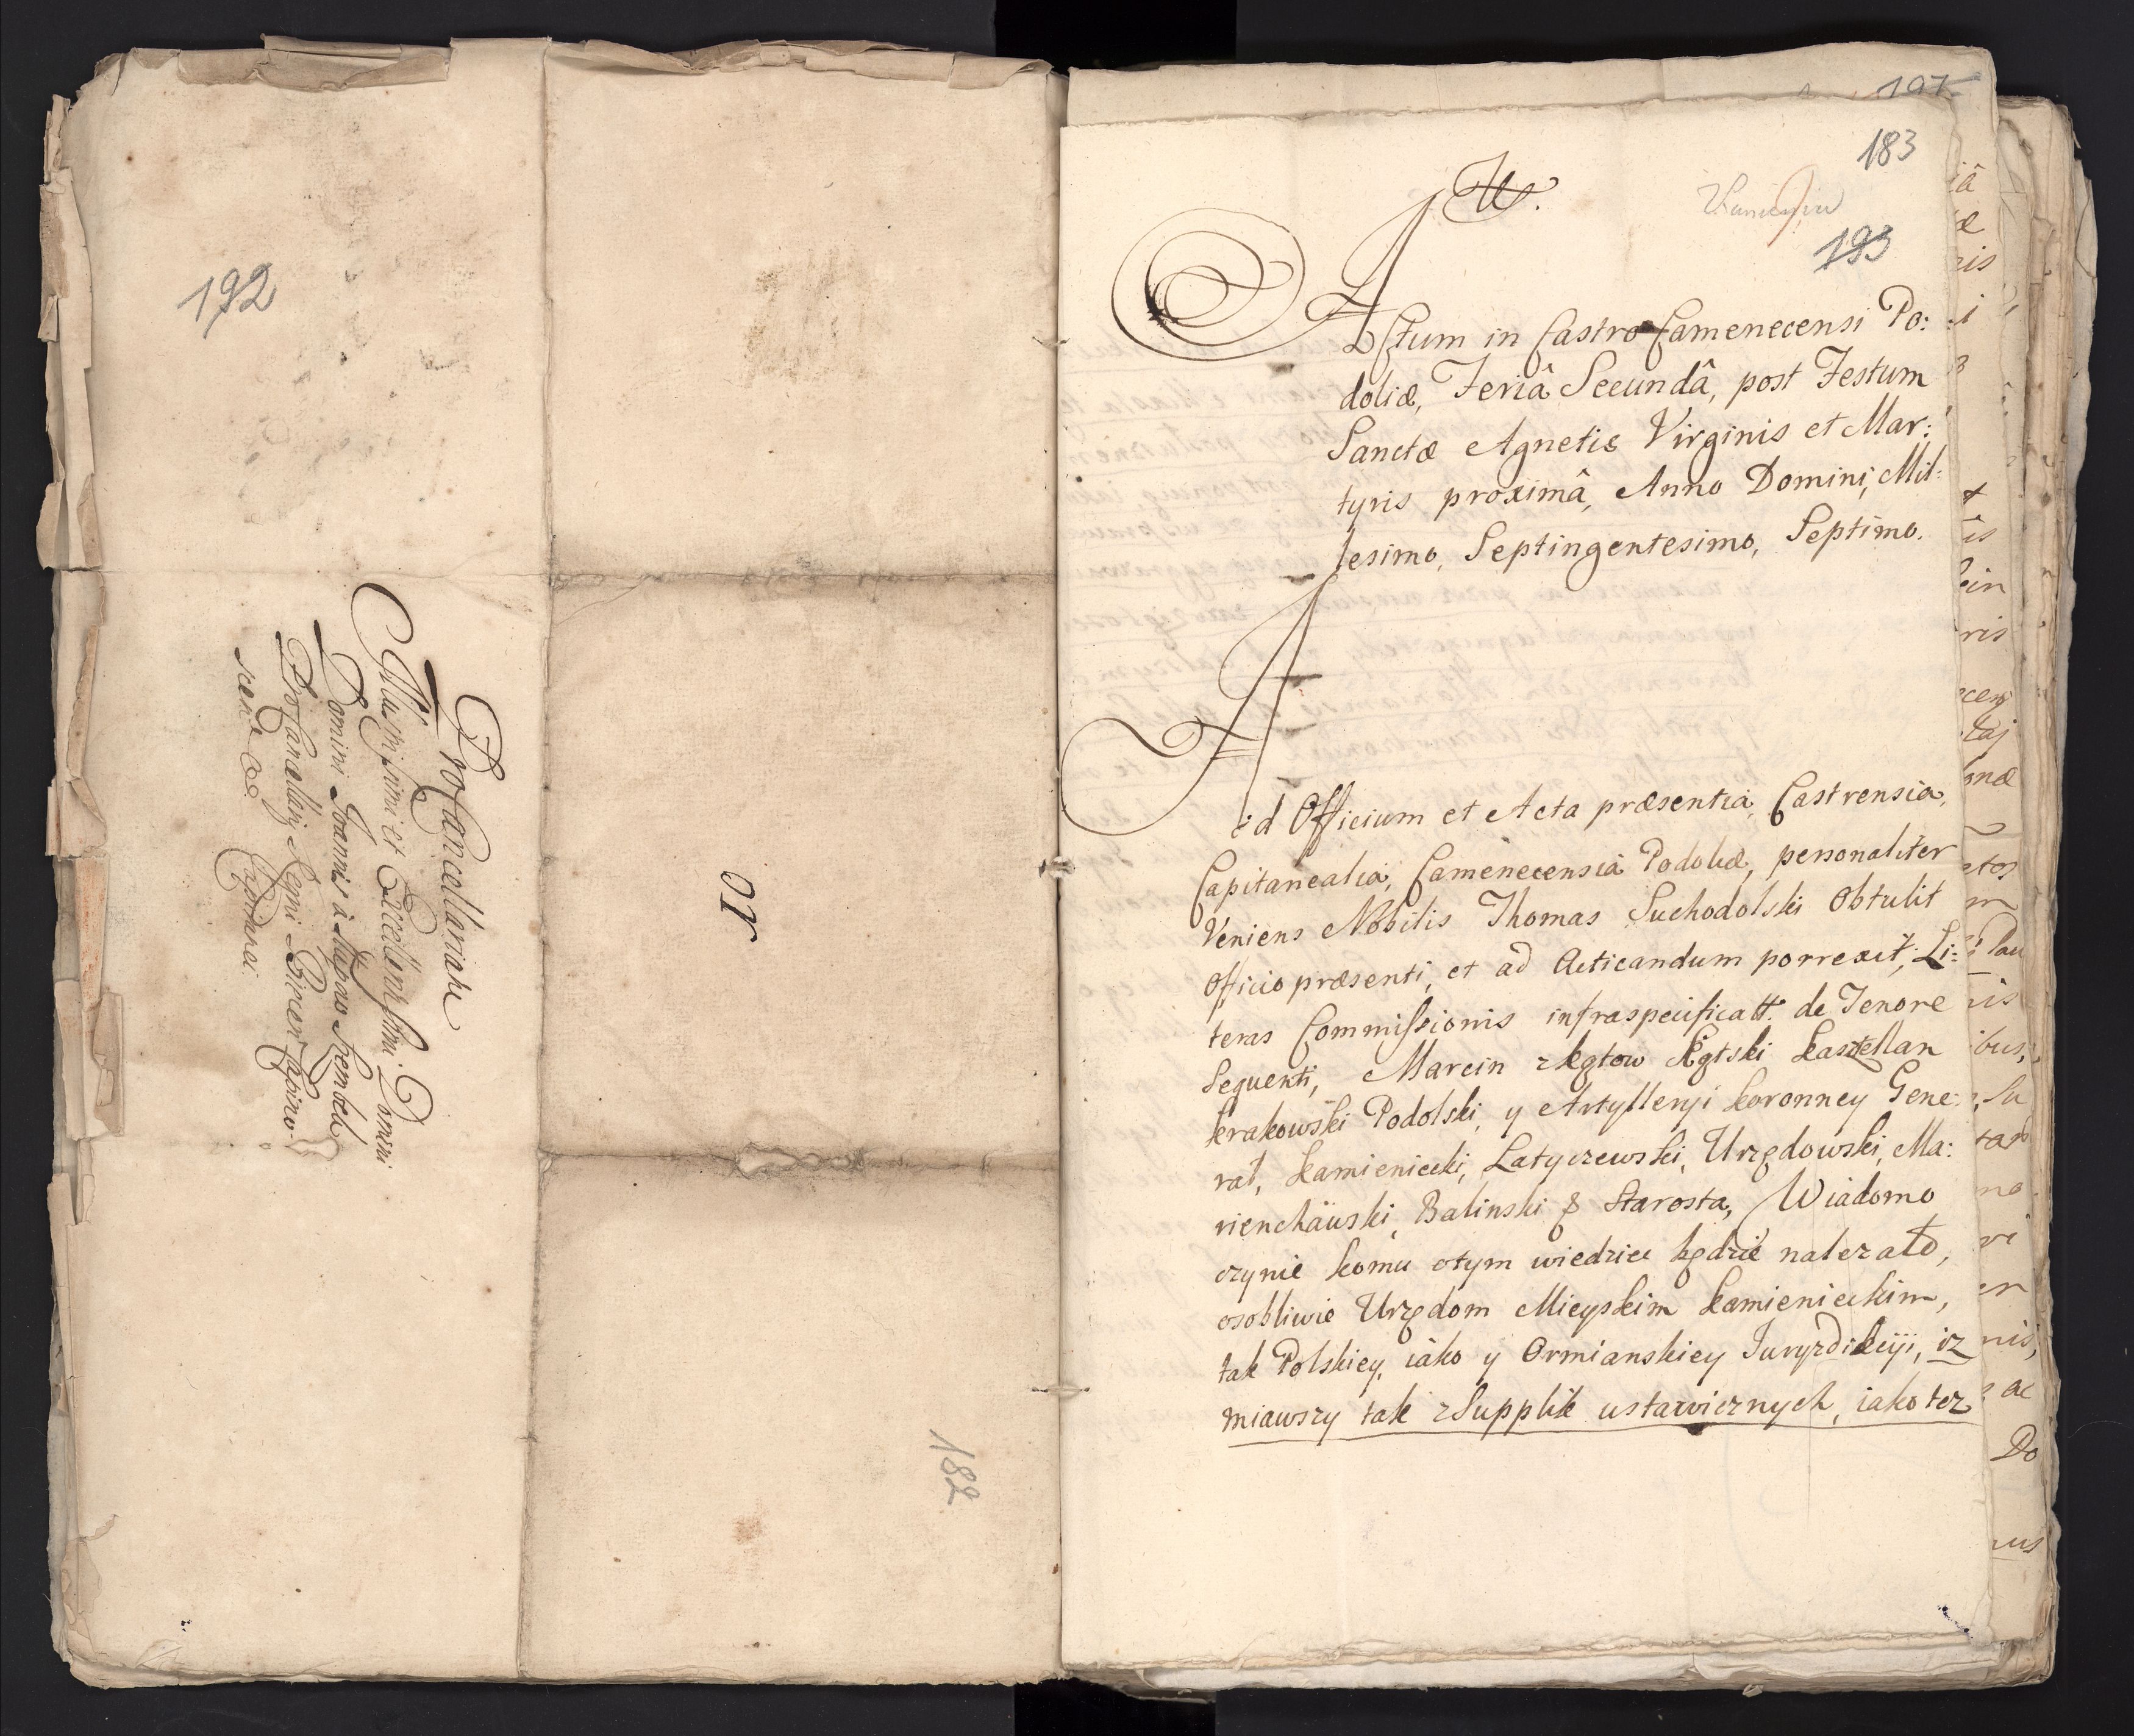 192
Procancellariatu
Illustrissimi et Excellentissimi Domini
Domini Joannis à Słupow Szembek
Procancellarij Regni Bieceñ Lipino-
scen &&
Capitanei
or
182
197
183
193
Actum in Castro Camenecensi Po:
doliæ, Feriâ Secundâ, post Festum
Sanctæ Agnetis Virginis et Mar:
tyris proximâ, Anno Domini, Mil:
lesimo, Septingentesimo, Septimo.
Ad Officium et Acta præsentia, Castrensia,
Capitanealia, Camenecensia Podoliæ, personaliter
Veniens Nobilis Thomas Suchodolski Obtulit
Officio præsenti, et ad Acticandum porrexit, Li:
teras Commissionis infraspecificatt. de Tenore
Sequenti, Marcin z Kątow Kątski Kasztellan
Krakowski Podolski, y Artylleryi Koronney Gene:
rał, Kamieniecki, Latyczewski, Urzędowski, Ma:
rienchauski, Balinski & Starosta, Wiadomo
czynie komu otym wiedziec będzie nalezało,
osobliwie Urzędom Mieyskim Kamienieckim,
tak Polskiey, iako y Ormianskiey Juryzdikcyi, iz
miawszy tak z Supplik ustawicznych, iako tez